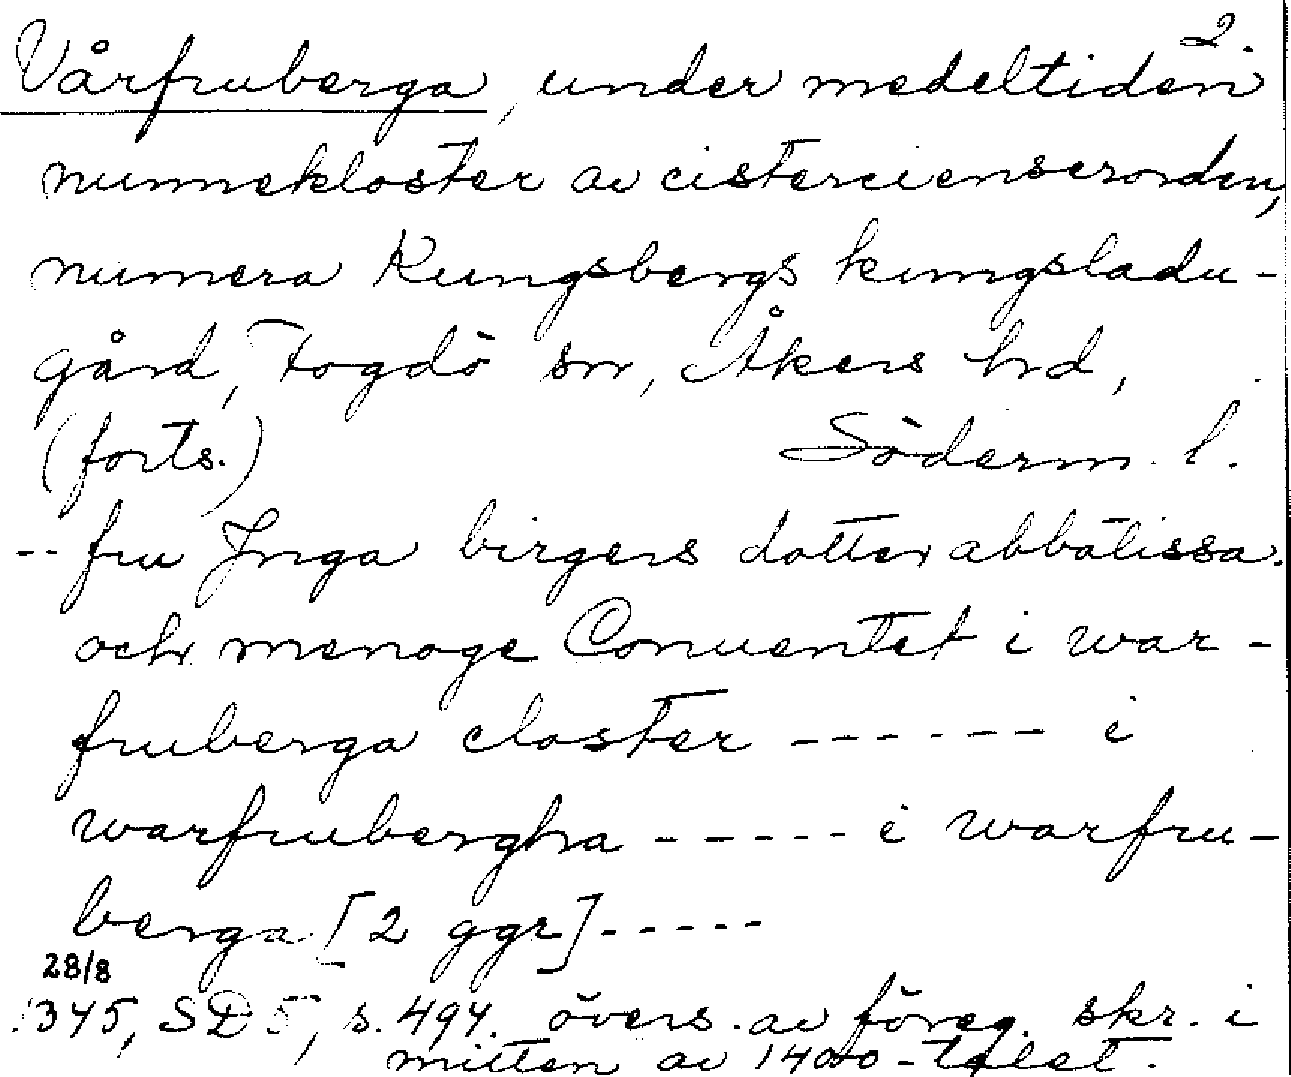 2.
Vårfruberga, under medeltiden
nunnekloster av cistercienserorden,
numera Kungsbergs kungsladu-
gård, Fogdö sn, Åkers hd,
(forts.) Söderm. l.
-- fru Inga birgers dotter abbatissa
och menoge Conuentet i war-
fruberga closter ------ i
warfrubergha ----- i warfru-
berga [2 ggr] -----
28/8
1345, SD 5, s. 494. övers. av föreg. skr. i
mitten av 1400-talet.